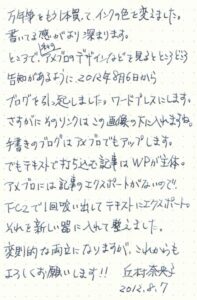 万年筆をもう1本買って、インクの色を変えました。
書いてる感がより深まります。
ところで、アメブロのデザインなどを見るとところどころ
告知があるように、2012年8月6日から
ブログを引っ起ししました。ワードプレスにします。
さすがにそのリンクはこの画像の下に入れますね。
手書きのブログはアメブロでもアップします。
でもテキストで打ち込む記事はWPが主体。
アメブロには記事のエクスポートがないので、
FC2で1回吸い出してテキストにエクスポート。
それを新しい器に入れて整えました。
変則的な両立になりますが、これからも
よろしくお願いします!!
2012.8.7